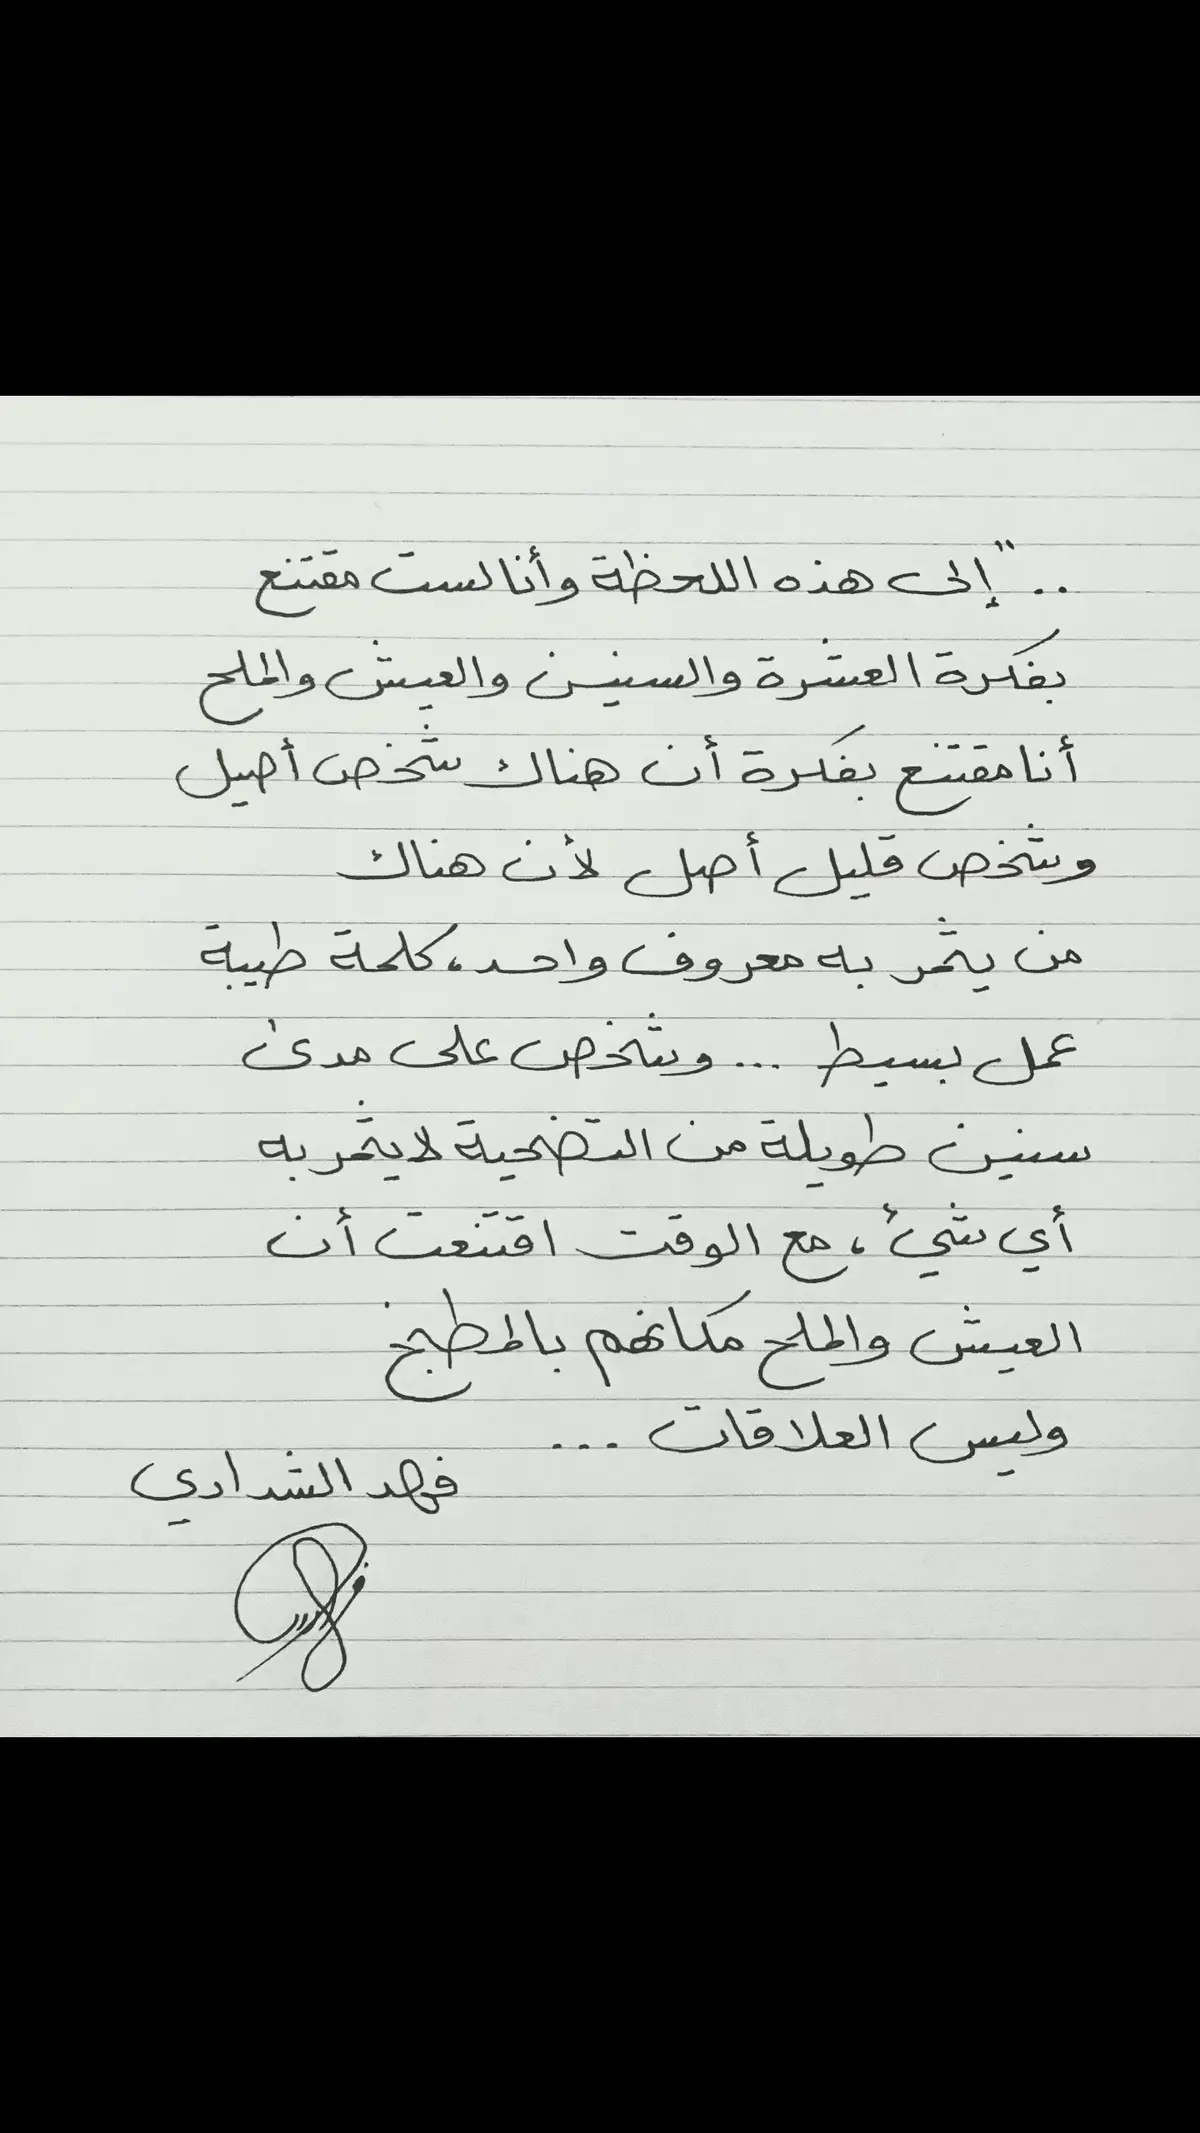 .. "إلى هذه اللحظة وأنا لست مقتنع
بفكرة العشرة والسنين والعيش والملح
أنا مقتنع بفكرة أن هناك شخص أصيل
وشخص قليل أصل لأن هناك
من يثمر به معروف واحد، كلمة طيبة
عمل بسيط ... وشخص على مدى
سنين طويلة من التضحية لا يثمر به
أي شيء، مع الوقت اقتنعت أن
العيش والملح مكانهم بالمطبخ
وليس العلاقات ...
فهد الشدادي